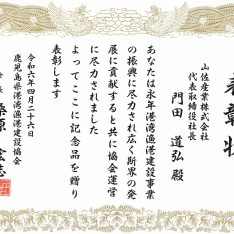 表彰状
山佐産業株式会社
代表取締役社長
門田道弘殿
あなたは永年港湾漁港建設事業
の振興に尽力され広く斯界の発
展に貢献すると共に協会運営
に尽力されました
よってここに記念品を贈り
表彰します
令和六年四月二十六日
鹿児島県港湾漁港建設協会
会長 桑原